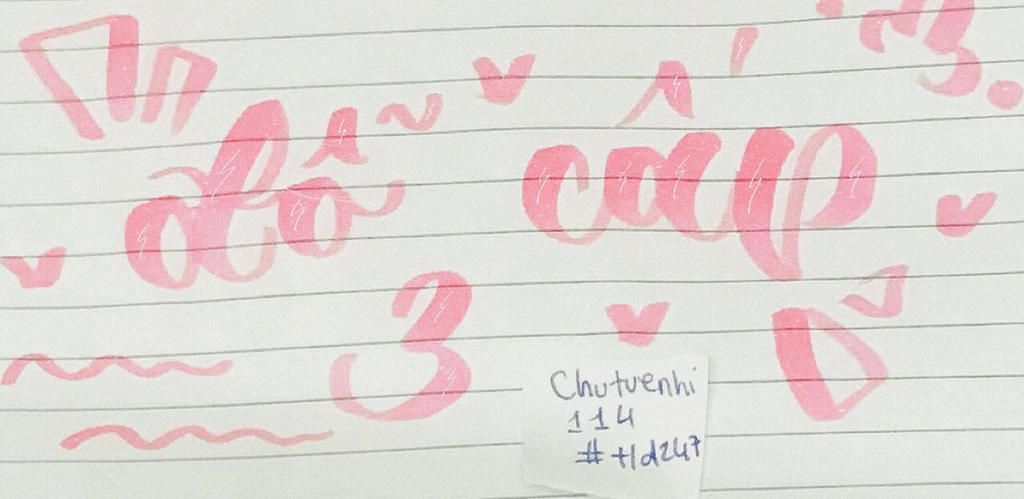 đỗ cấp
3
Chutuenhi
114
#tld247